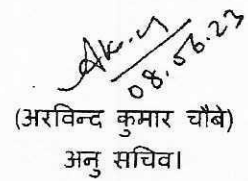 08.06.23
(अरविन्द कुमार चौबे)
अनु सचिव।